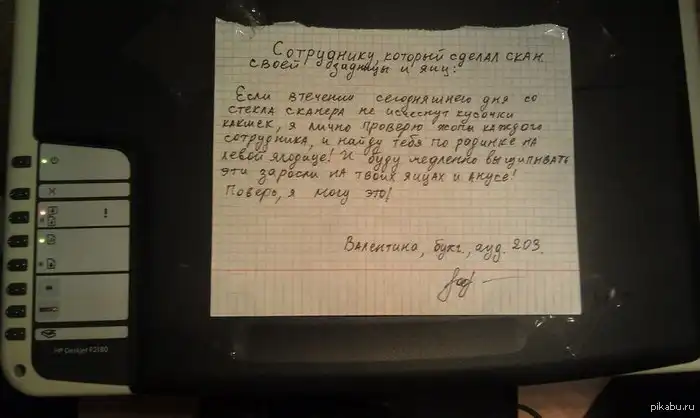 Сотруднику, который сделал скан
своей задницы и яиц:
Если втечении сегодняшнего дня со
стекла сканера не исчезнут кусочки
какшек, я лично проверю жопы каждого
сотрудника, и найду тебя по родинке на
левой ягодице! И буду медленно выщипывать
эти заросли на твоих яйцах и анусе!
Поверь, я могу это!
Валентина, бухг., ауд. 203.
HP Deskjet F2180
pikabu.ru